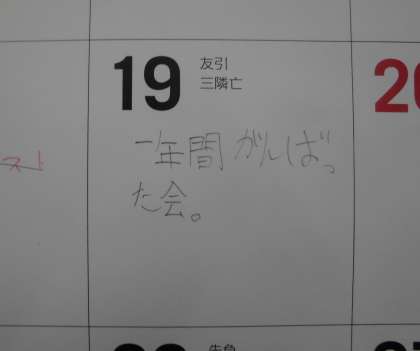 19 友引
三隣亡
スト
一年間がんばっ
た会。
先負